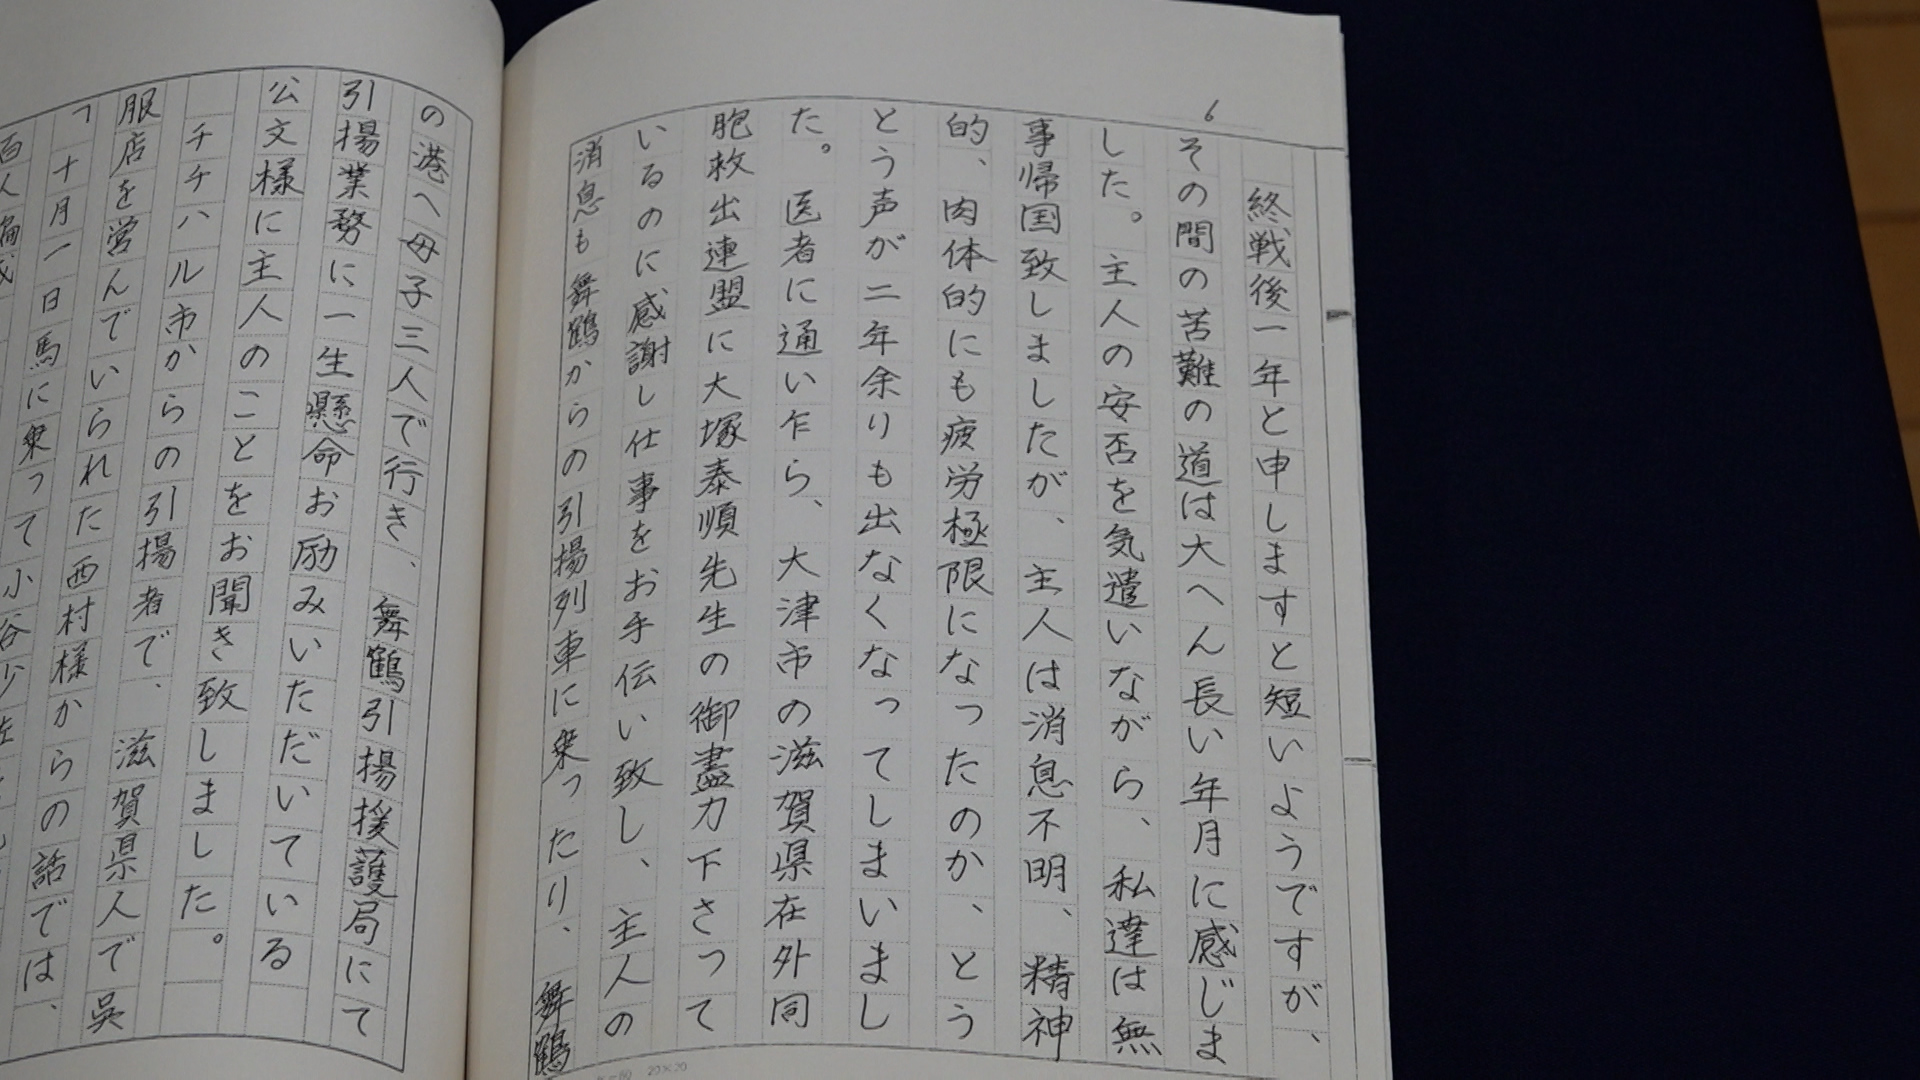 6
終戦後一年と申しますと短いようですが、
その間の苦難の道は大へん長い年月に感じま
した。主人の安否を気遣いながら、私達は無
事帰国致しましたが、主人は消息不明、精神
的、肉体的にも疲労極限になったのか、とう
とう声が二年余りも出なくなってしまいまし
た。医者に通い乍ら、大津市の滋賀県在外同
胞救出連盟に大塚泰順先生の御盡力下さって
いるのに感謝し仕事をお手伝い致し、主人の
消息も舞鶴からの引揚列車に乗ったり、舞鶴
20×20
の港へ母子三人で行き、舞鶴引揚援護局にて
引揚業務に一生懸命お励みいただいている
公文様に主人のことをお聞き致しました。
チチハル市からの引揚者で、滋賀県人で呉
服店を営んでいられた西村様からの話では、
「十月一日馬に乗って小谷少佐
百人編成